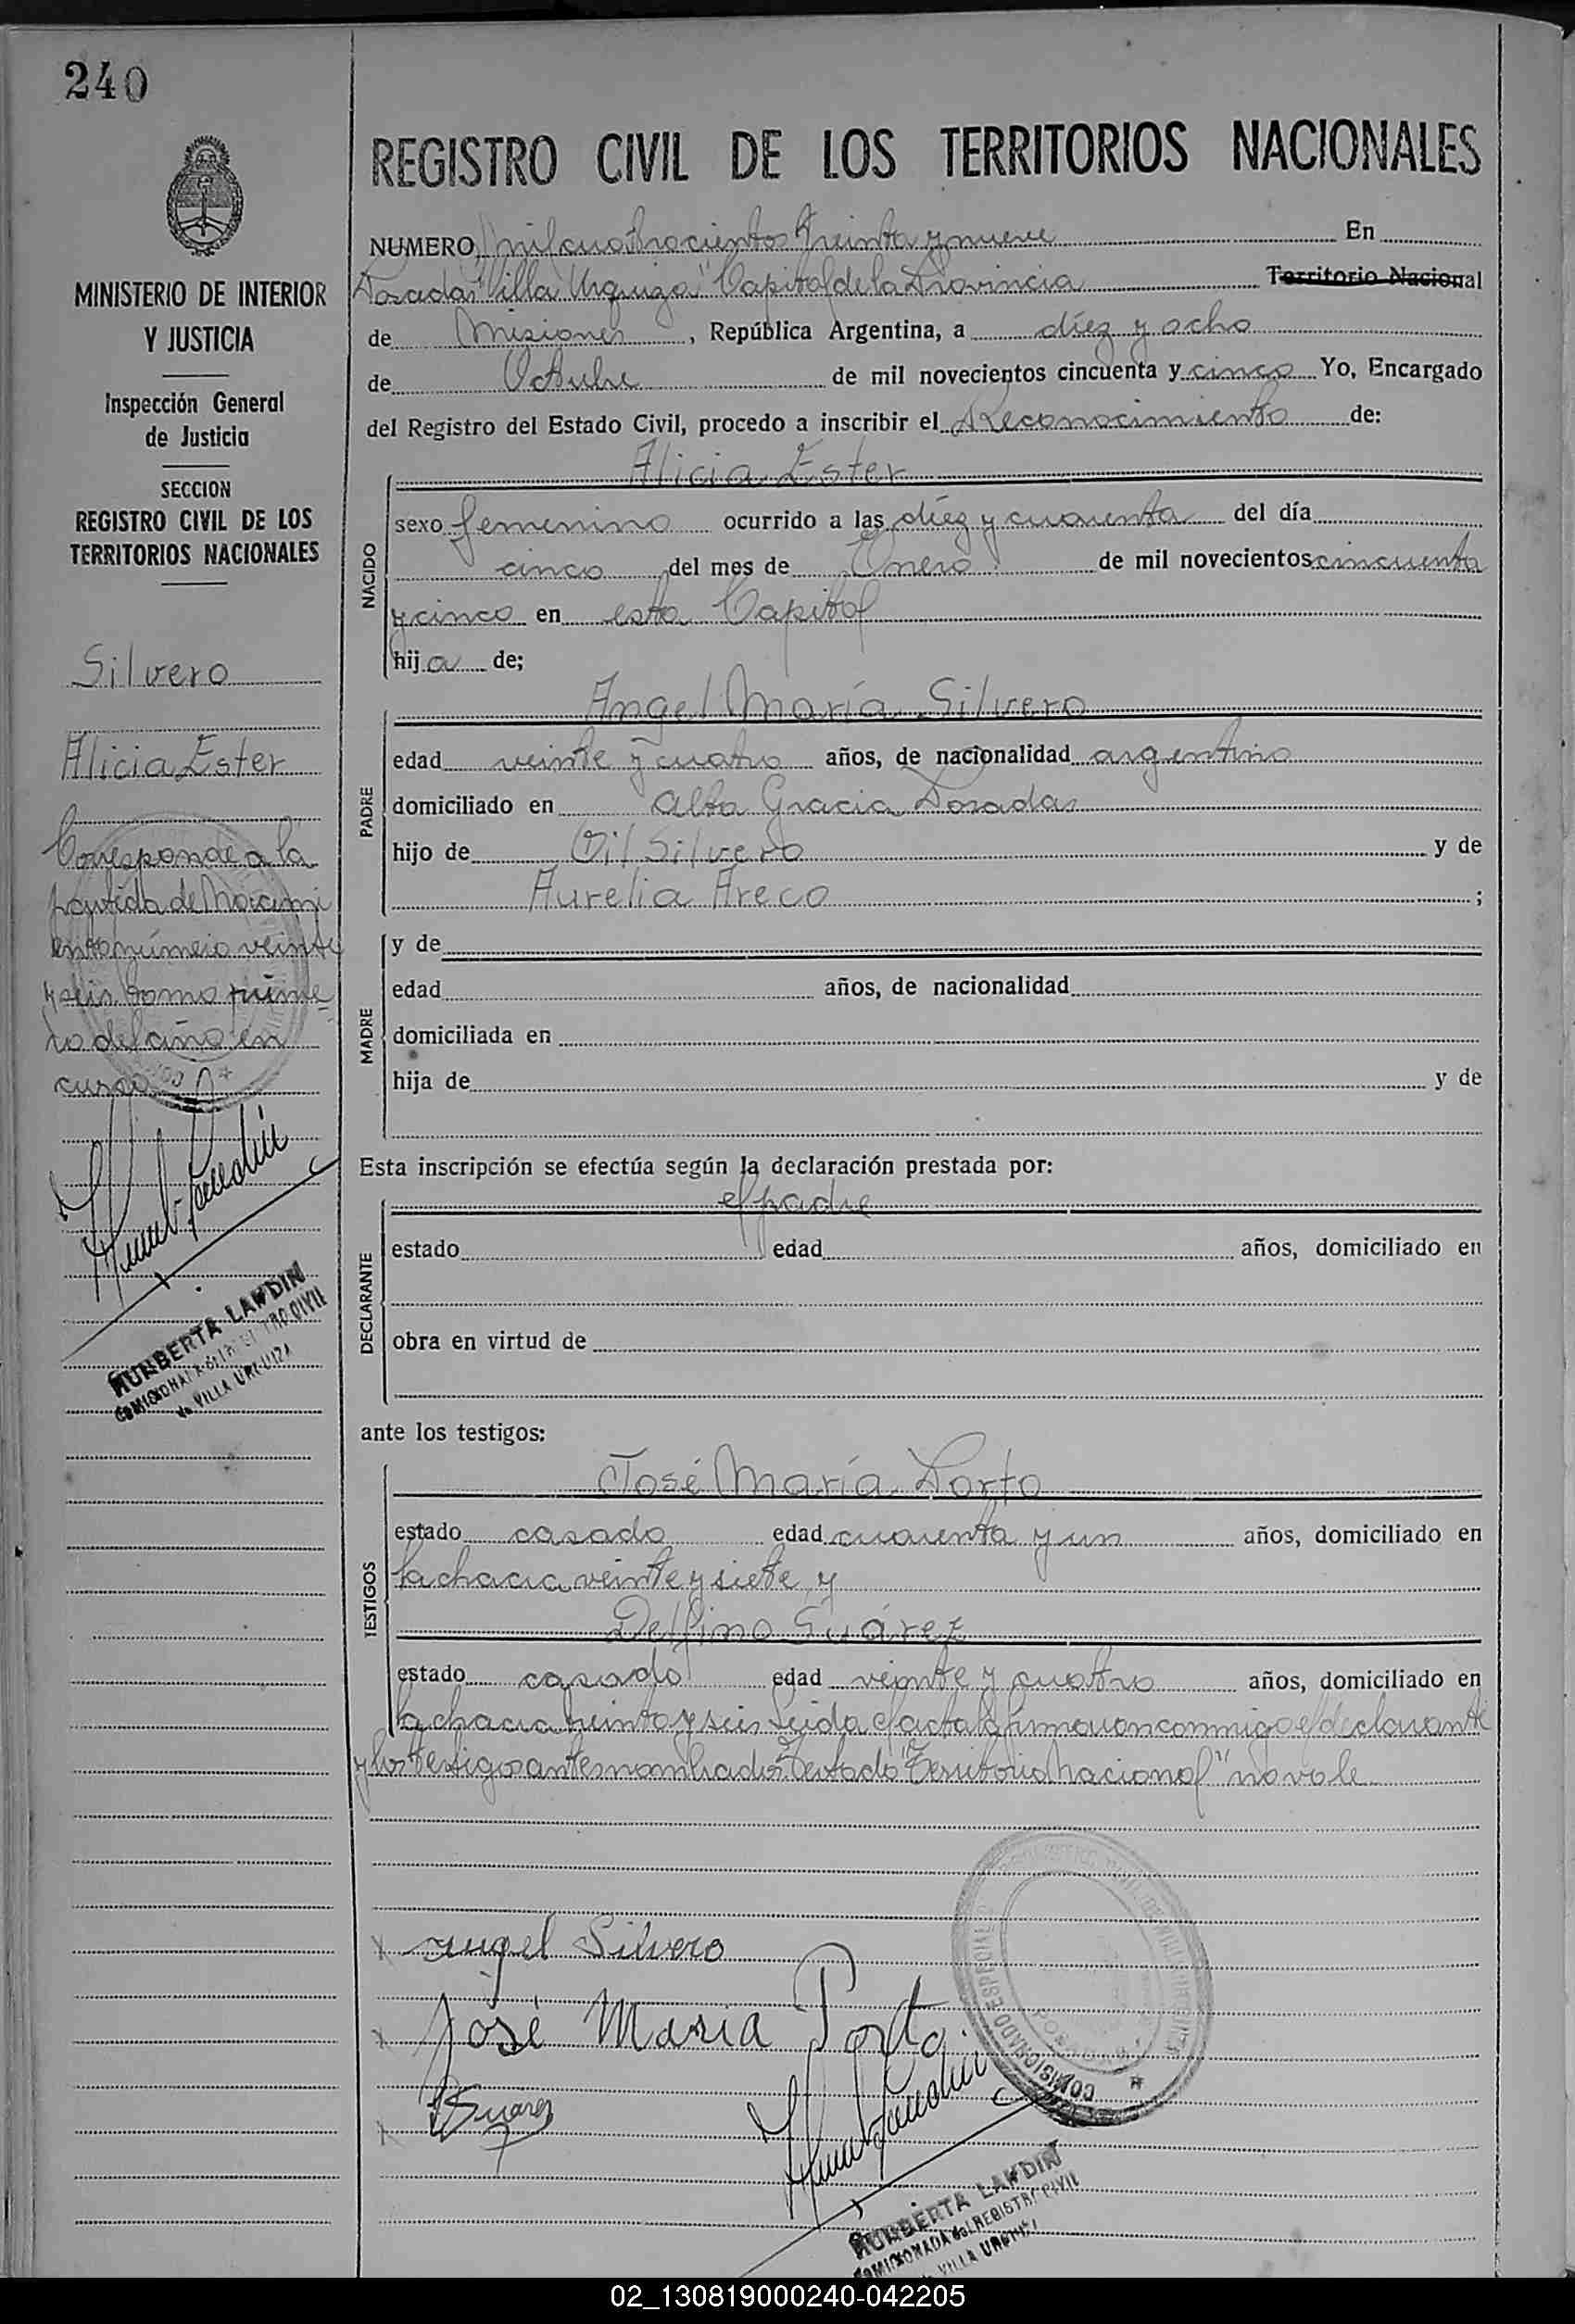 240
MINISTERIO DE INTERIOR
Y JUSTICIA
Inspección General
de Justicia
SECCION
REGISTRO CIVIL DE LOS
TERRITORIOS NACIONALES
Silvero
Alicia Ester
Corresponde a la
partida de Nacimi
ento número veinte
y seis tomo prime
ro del año en
curso
HUMBERTA LANDIN
COMISIONADA del REGISTRO CIVIL
de VILLA URQUIZA
REGISTRO CIVIL DE LOS TERRITORIOS NACIONALES
NUMERO mil cuatrocientos treinta y nueve En
Posadas "Villa Urquiza" Capital de la Provincia Territorio Nacional
de Misiones, República Argentina, a diez y ocho
de Octubre de mil novecientos cincuenta y cinco Yo, Encargado
del Registro del Estado Civil, procedo a inscribir el Reconocimiento de:
Alicia Ester
NACIDO
sexo femenino ocurrido a las diez y cuarenta del día
cinco del mes de Enero de mil novecientos cincuenta
y cinco en esta Capital
hija de;
Angel María Silvero
PADRE
edad veinte y cuatro años, de nacionalidad argentino
domiciliado en Alta Gracia Posadas
hijo de Gil Silvero y de
Aurelia Areco ;
MADRE
y de
edad años, de nacionalidad
domiciliada en
hija de y de
Esta inscripción se efectúa según la declaración prestada por:
el padre
DECLARANTE
estado edad años, domiciliado en
obra en virtud de
ante los testigos:
José María Porto
TESTIGOS
estado casado edad cuarenta y un años, domiciliado en
la chacra veinte y siete y
Delfino Suárez
estado casado edad veinte y cuatro años, domiciliado en
la chacra treinta y seis Leida el acta la firmaron conmigo el declarante
y los testigos antes nombrados Testado "Territorio Nacional" no vale
x Angel Silvero
x José Maria Porto
x Suarez
COMISIONADO ESPECIAL
POSADAS
HUMBERTA LANDIN
COMISIONADA del REGISTRO CIVIL
de VILLA URQUIZA
02_130819000240-042205